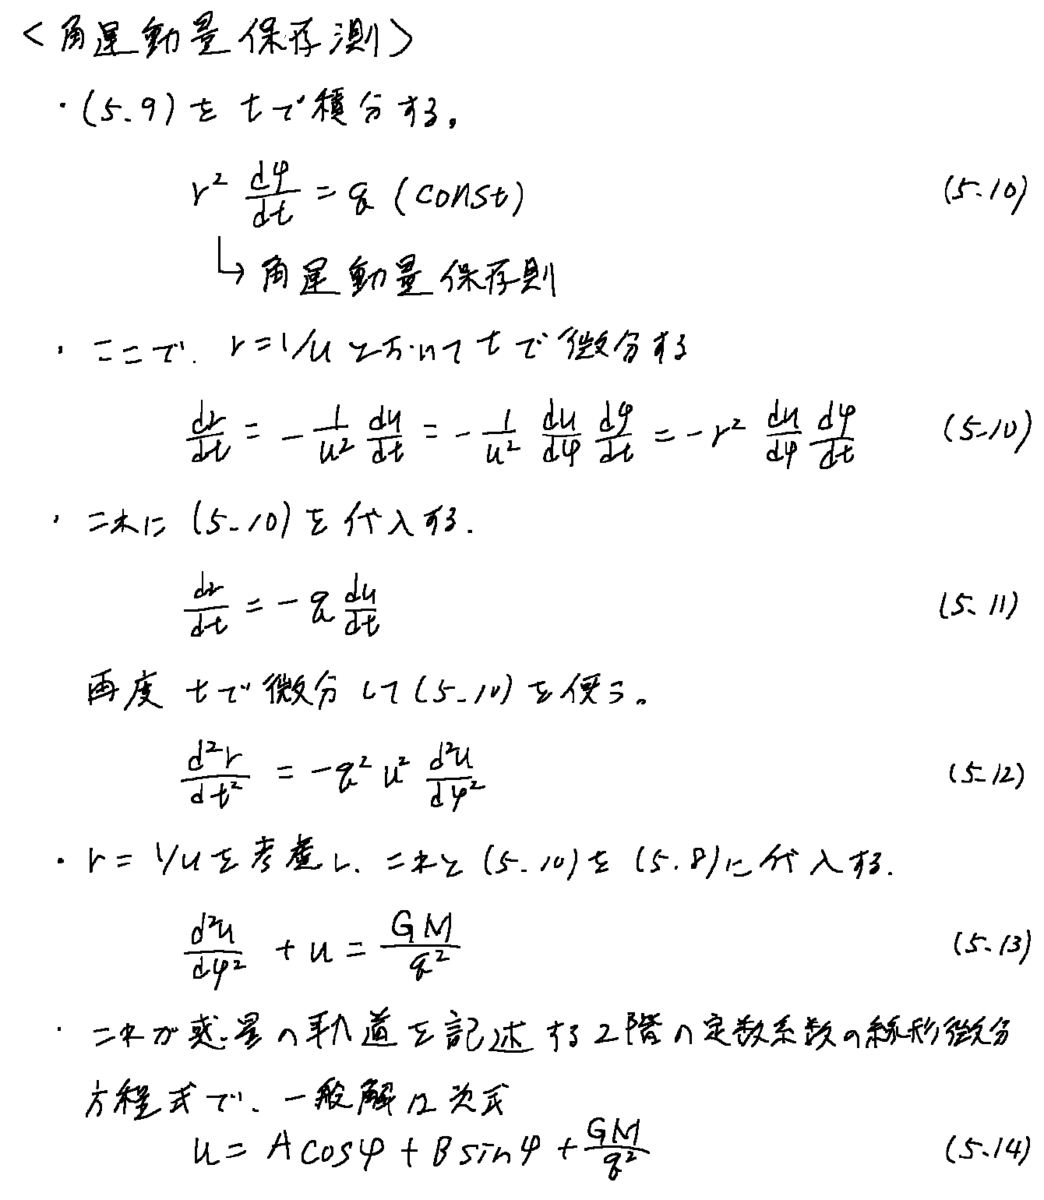 <角運動量保存測>
・(5.9)をtで積分する。
r² dφ/dt = q (const) (5.10)
↳ 角運動量保存則
・ここで、r=1/uとおいてtで微分する
dr/dt = -1/u² du/dt = -1/u² du/dφ dφ/dt = -r² du/dφ dφ/dt (5.10)
・これに(5.10)を代入する.
dr/dt = -q du/dt (5.11)
再度tで微分して(5.10)を使う。
d²r/dt² = -q²u² d²u/dφ² (5.12)
・r=1/uを考慮し、これと(5.10)を(5.8)に代入する.
d²u/dφ² + u = GM/q² (5.13)
・これが惑星の軌道を記述する2階の定数系数の線形微分
方程式で、一般解は次式
u = A cosφ + B sinφ + GM/q² (5.14)